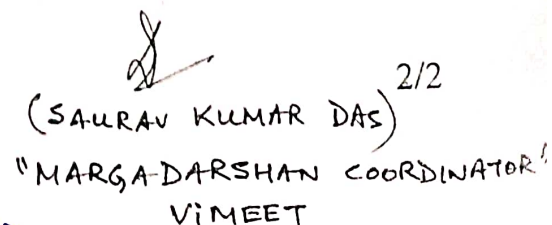 (SAURAV KUMAR DAS) 2/2
"MARGADARSHAN COORDINATOR"
ViMEET